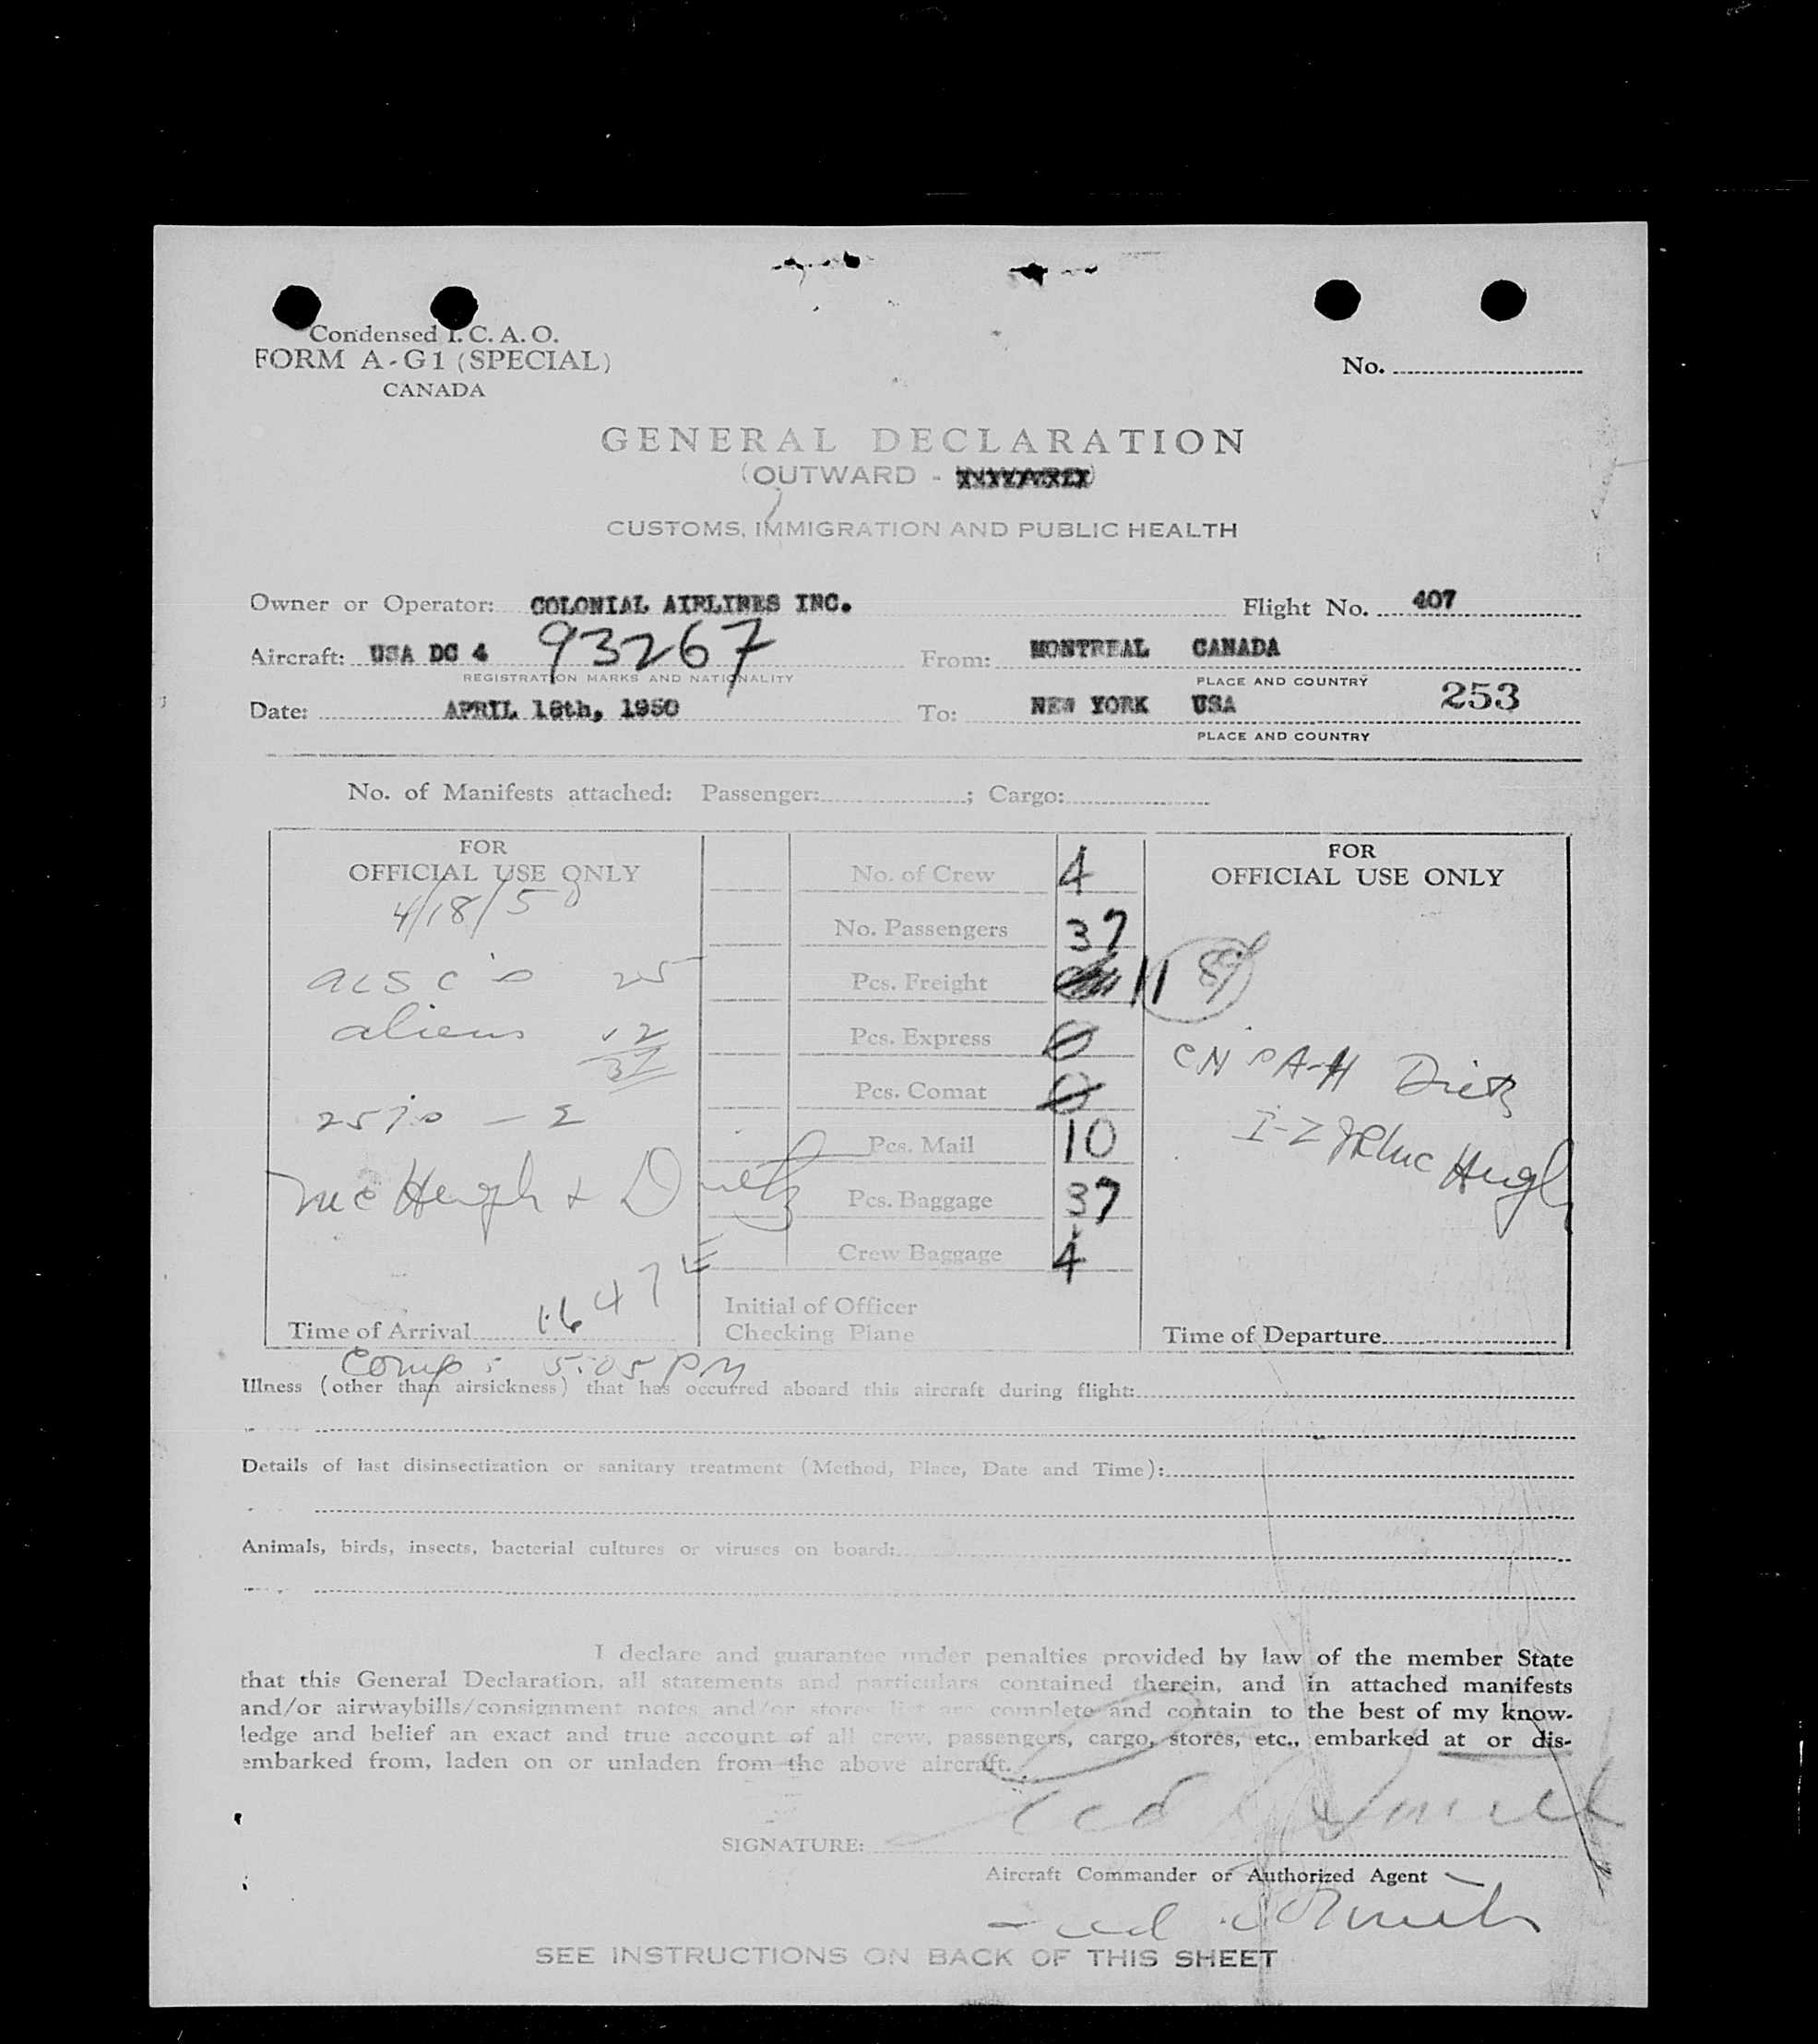 Condensed I. C. A. O.
FORM A-G1 (SPECIAL)
CANADA
No.
GENERAL DECLARATION
(OUTWARD - )
CUSTOMS, IMMIGRATION AND PUBLIC HEALTH
Owner or Operator: COLONIAL AIRLINES INC. Flight No. 407
Aircraft: USA DC 4 93267 From: MONTREAL CANADA
REGISTRATION MARKS AND NATIONALITY PLACE AND COUNTRY
Date: APRIL 18th, 1950 To: NEW YORK USA 253
PLACE AND COUNTRY
No. of Manifests attached: Passenger: ; Cargo:
FOR
OFFICIAL USE ONLY
4/18/50
25
aliens 12
37
Mc Hugh & Dietz
Time of Arrival 1647
Comp: 5:05 PM
No. of Crew 4
No. Passengers 37
Pcs. Freight 11
Pcs. Express 0
Pcs. Comat 0
Pcs. Mail 10
Pcs. Baggage 37
Crew Baggage 4
Initial of Officer
Checking Plane
FOR
OFFICIAL USE ONLY
89
Dietz
Mc Hugh
Time of Departure
Illness (other than airsickness) that has occurred aboard this aircraft during flight:
Details of last disinsectization or sanitary treatment (Method, Place, Date and Time):
Animals, birds, insects, bacterial cultures or viruses on board:
I declare and guarantee under penalties provided by law of the member State
that this General Declaration, all statements and particulars contained therein, and in attached manifests
and/or airwaybills/consignment notes and/or stores list are complete and contain to the best of my know-
ledge and belief an exact and true account of all crew, passengers, cargo, stores, etc., embarked at or dis-
embarked from, laden on or unladen from the above aircraft.
SIGNATURE:
Aircraft Commander or Authorized Agent
SEE INSTRUCTIONS ON BACK OF THIS SHEET